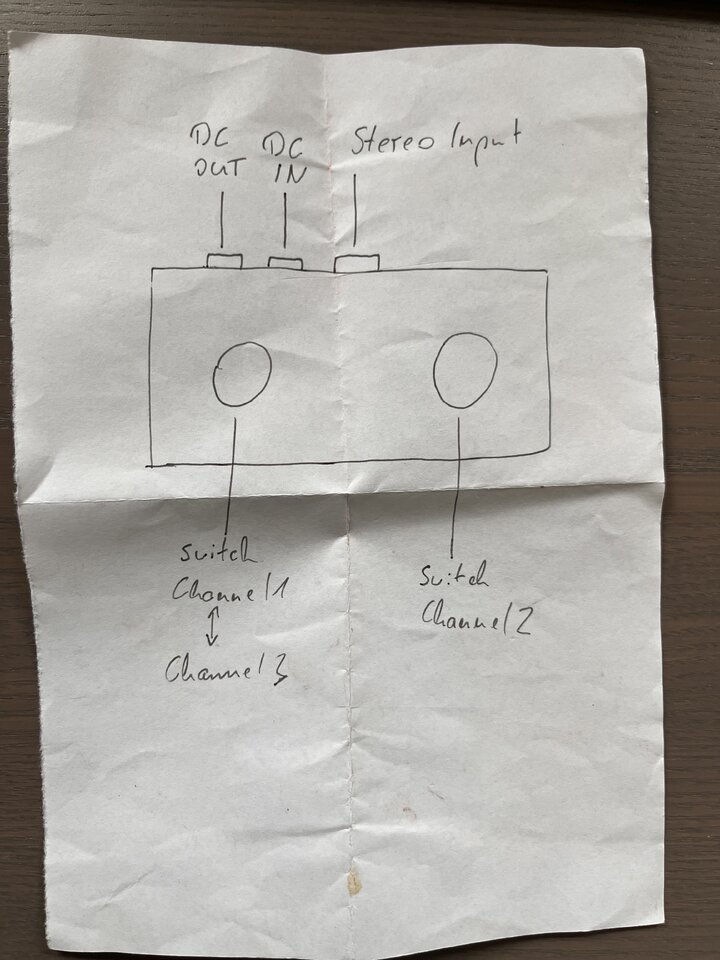 DC
OUT
DC
IN
Stereo Input
Switch
Channel 1
↕
Channel 3
Switch
Channel 2